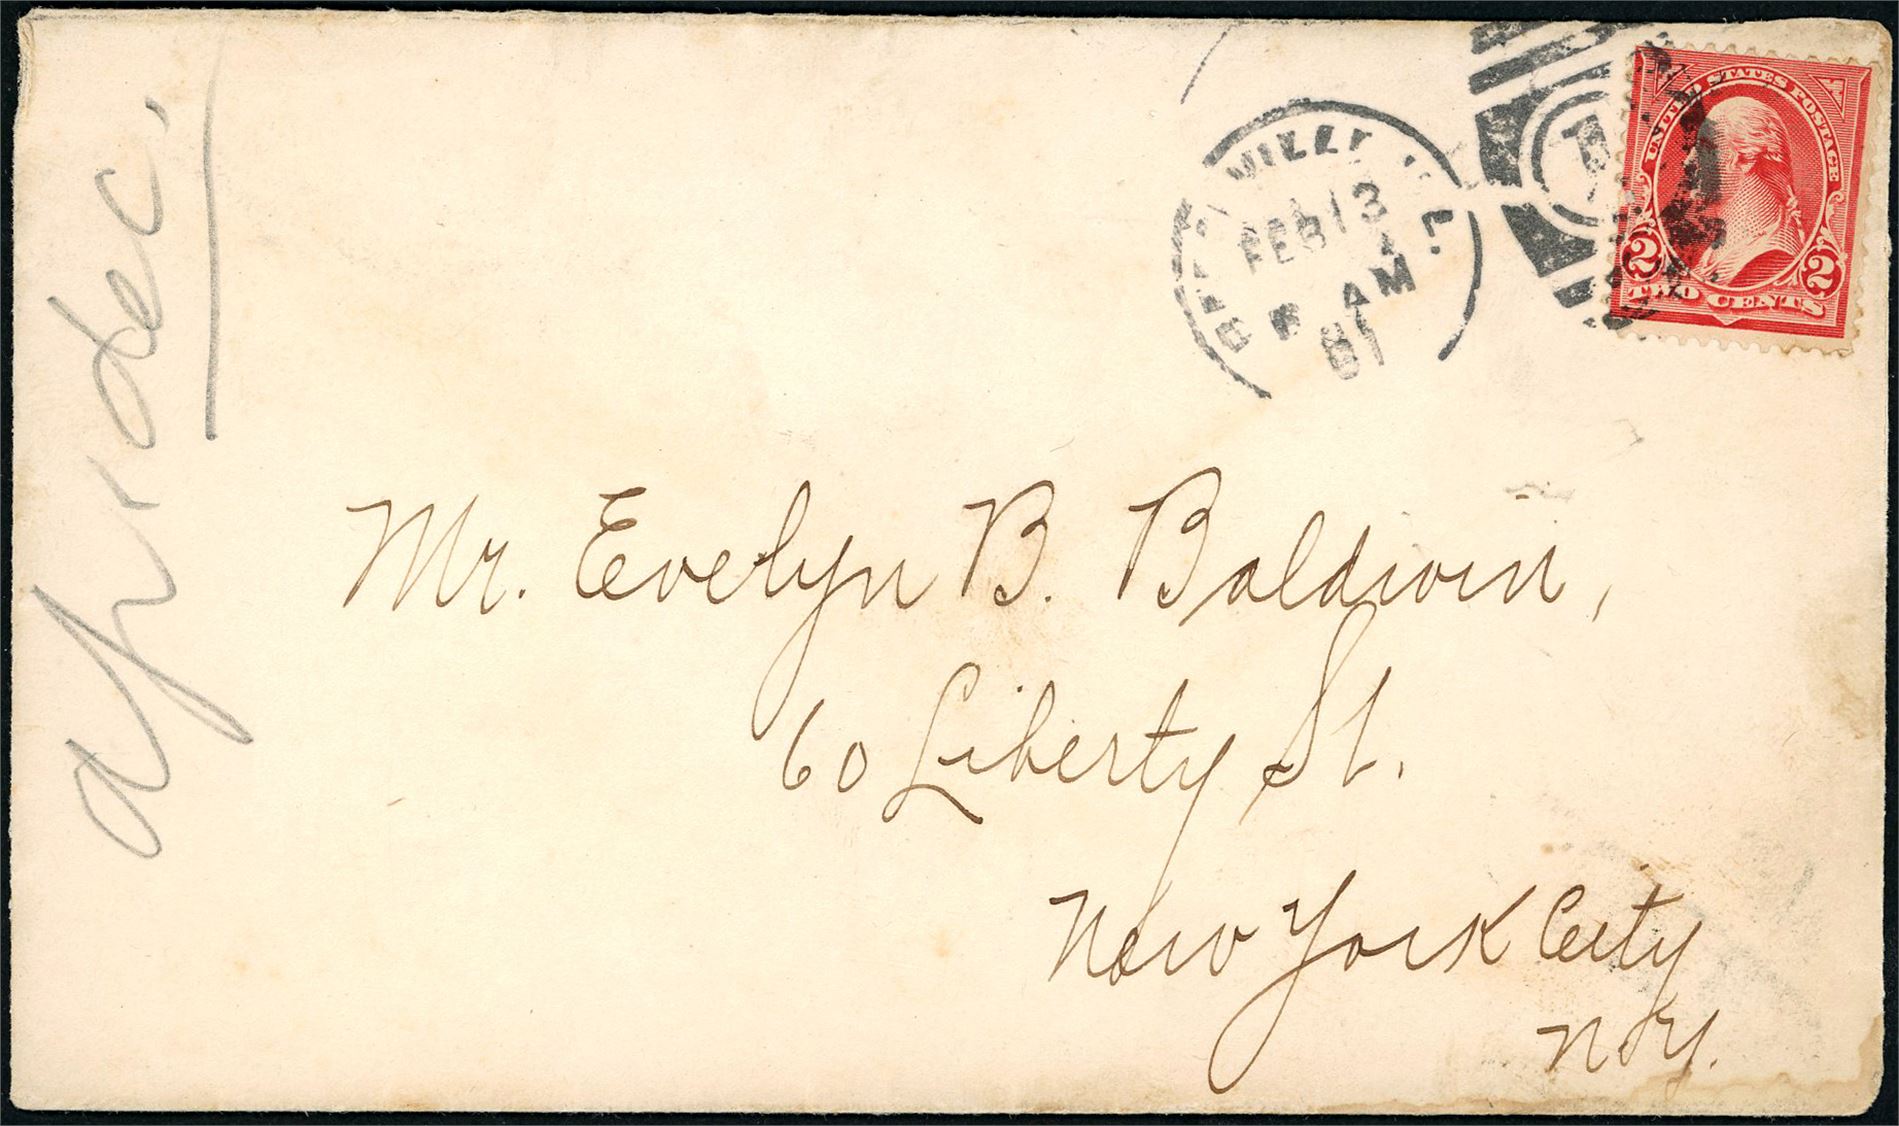 FEB 13
AM
UNITED STATES POSTAGE
2 2
TWO CENTS
Mr. Evelyn B. Baldwin,
60 Liberty St.
New York City
N.Y.